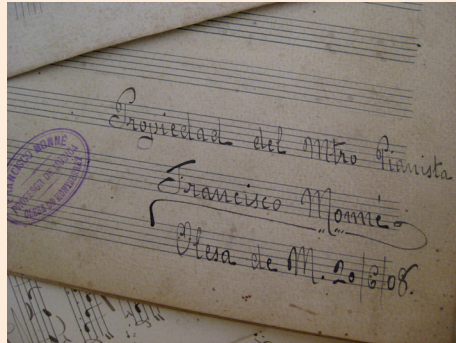 Propiedad del Mtro Pianista
Francisco Monné
Olesa de M. 20/6/08.
FRANCISCO MONNÉ